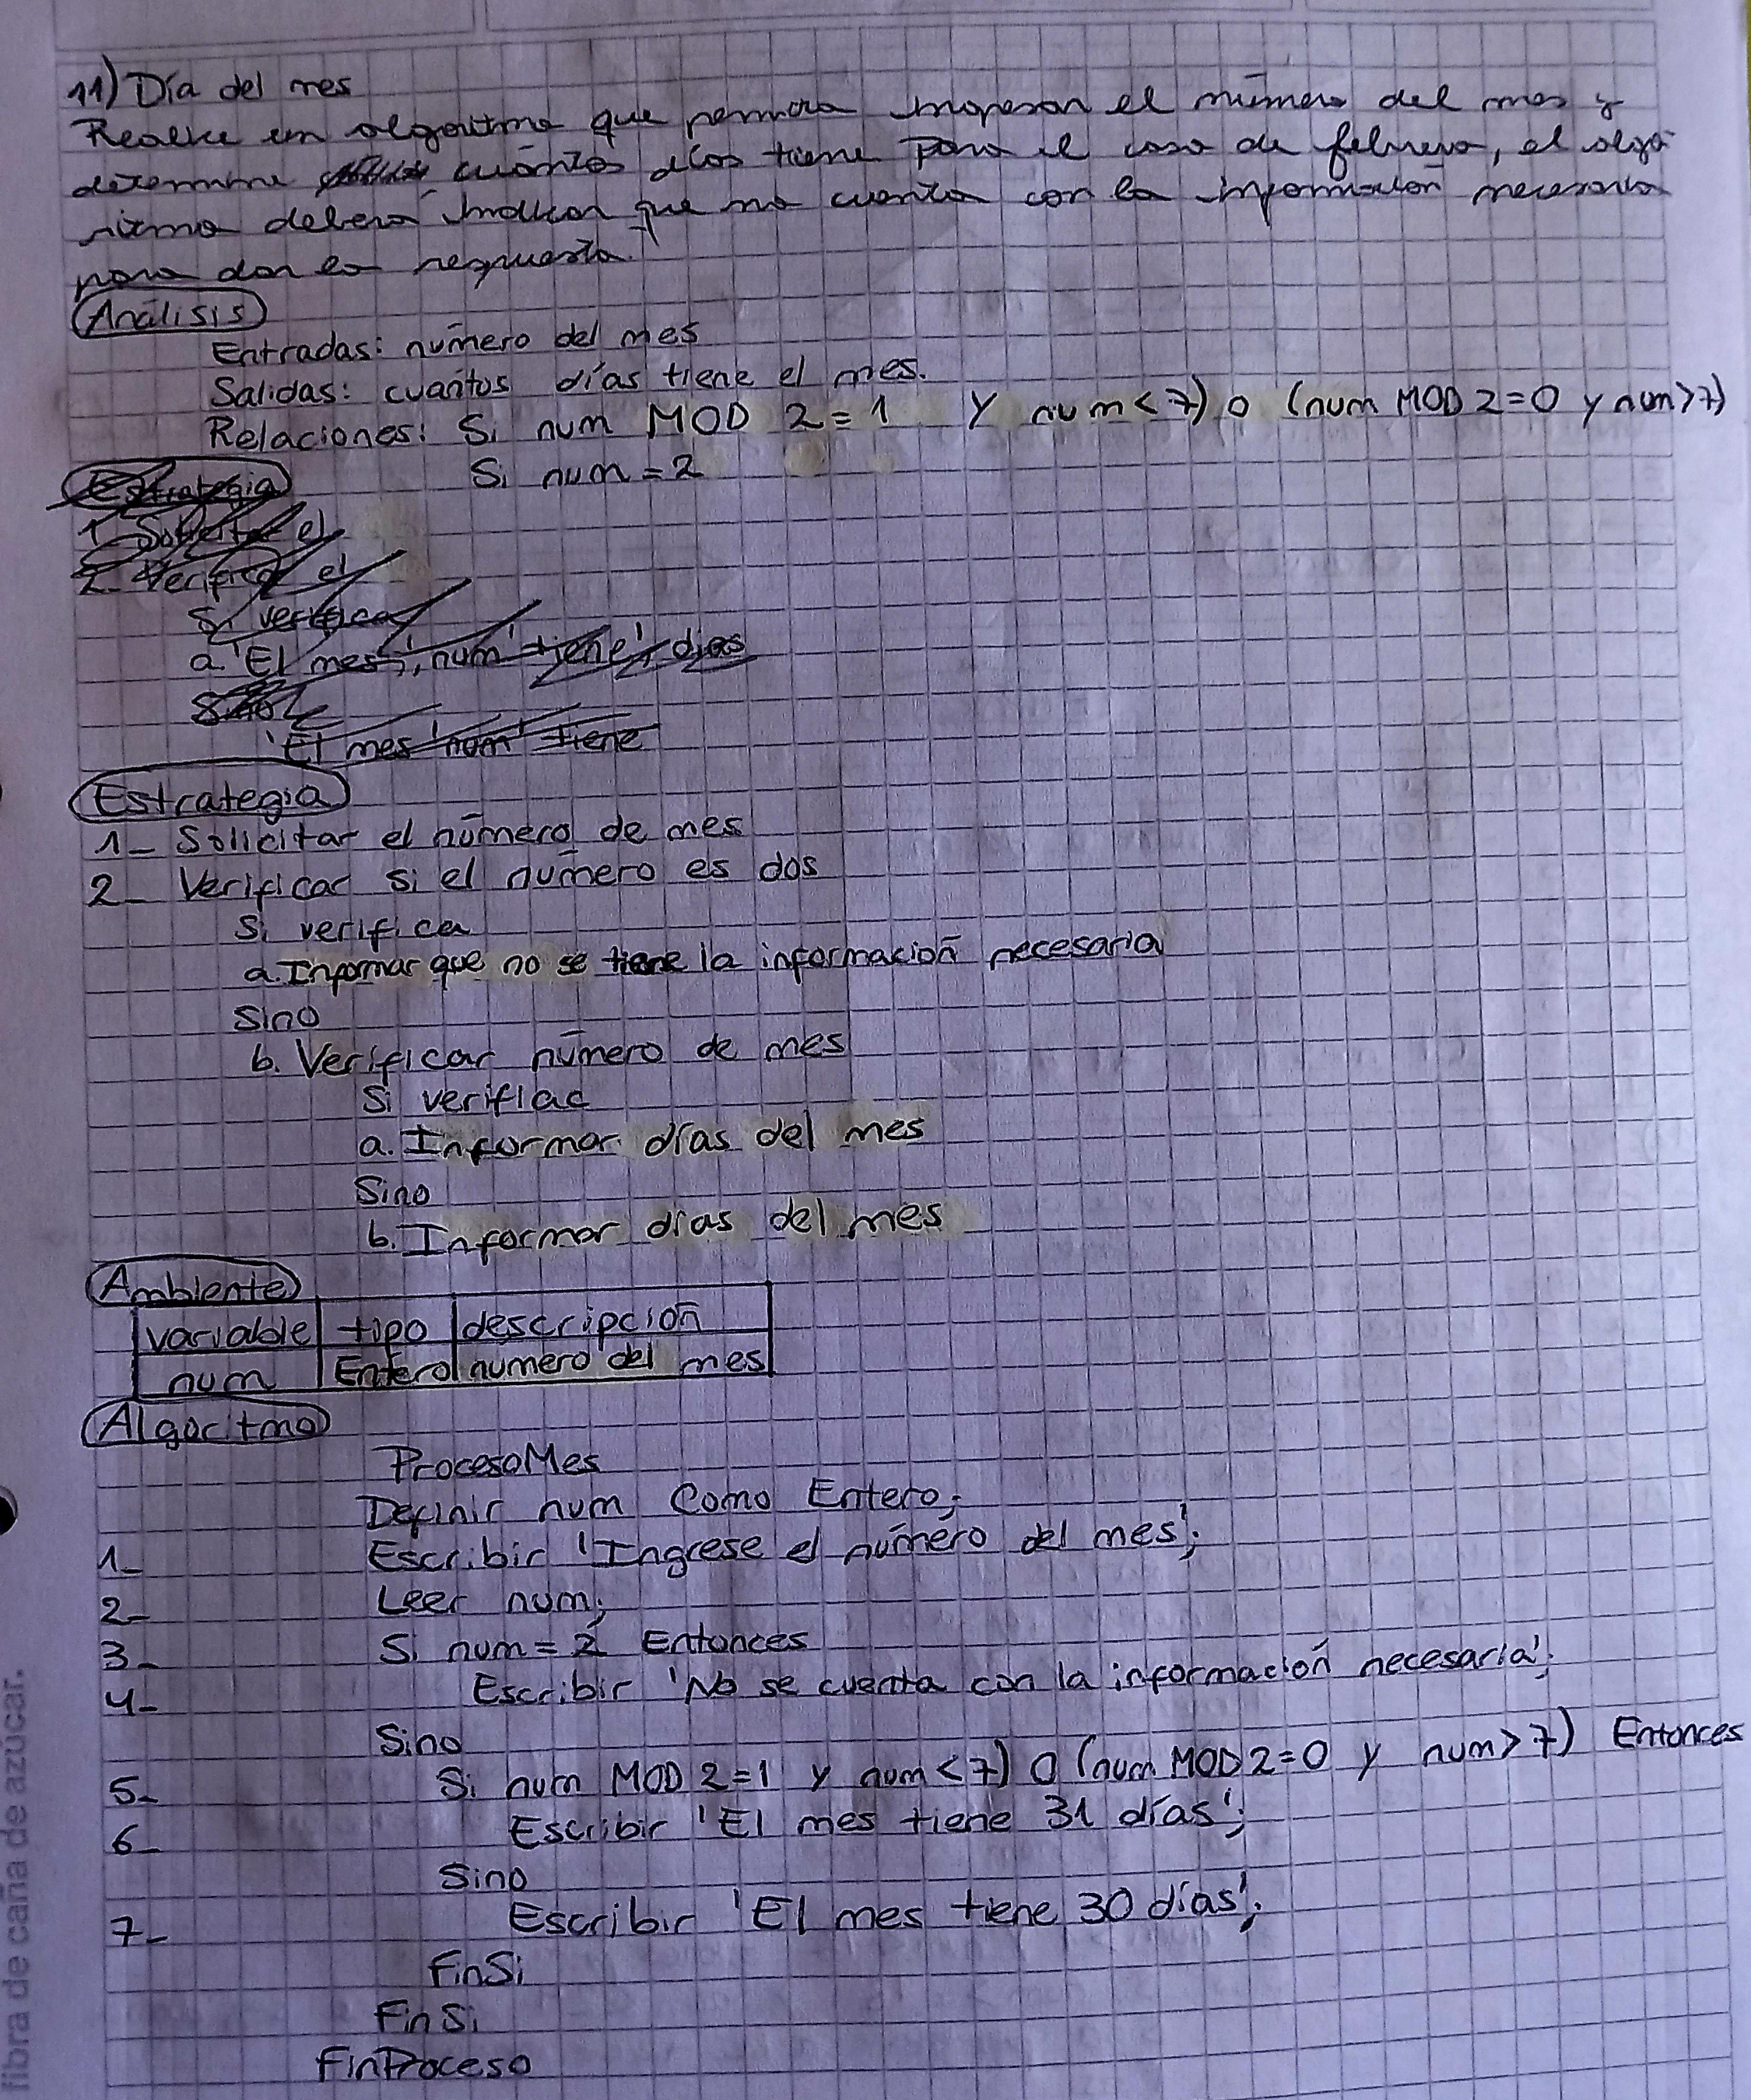 11) Día del mes
Realice un algoritmo que permita ingresar el número del mes y
determine cuántos días tiene Para el caso de febrero, el algo
ritmo deberá indicar que no cuenta con la información necesaria
para dar la respuesta.
Análisis
Entradas: número del mes
Salidas: cuántos días tiene el mes.
Relaciones: Si num MOD 2=1 Y num<7) o (num MOD 2=0 y num>7)
Si num=2
Estrategia
1. Solicitar el
2. Verificar el
Si verifica
a. 'El mes', num 'tiene', dias
Sino
'El mes 'num' tiene
Estrategia
1_ Solicitar el número de mes
2_ Verificar si el número es dos
Si verifica
a. Informar que no se tiene la información necesaria
Sino
b. Verificar número de mes
Si verifiac
a. Informar días del mes
Sino
b. Informar días del mes
Ambiente
variable tipo descripción
num Entero numero del mes
Algoritmo
ProcesoMes
Definir num Como Entero;
1_ Escribir 'Ingrese el número del mes';
2_ Leer num;
3_ Si num=2 Entonces
4_ Escribir 'No se cuenta con la información necesaria';
Sino
5_ Si num MOD 2=1 y num<7) O (num MOD 2=0 y num>7) Entonces
6_ Escribir 'El mes tiene 31 días';
Sino
7_ Escribir 'El mes tiene 30 días';
FinSi
FinSi
FinProceso
fibra de caña de azúcar.